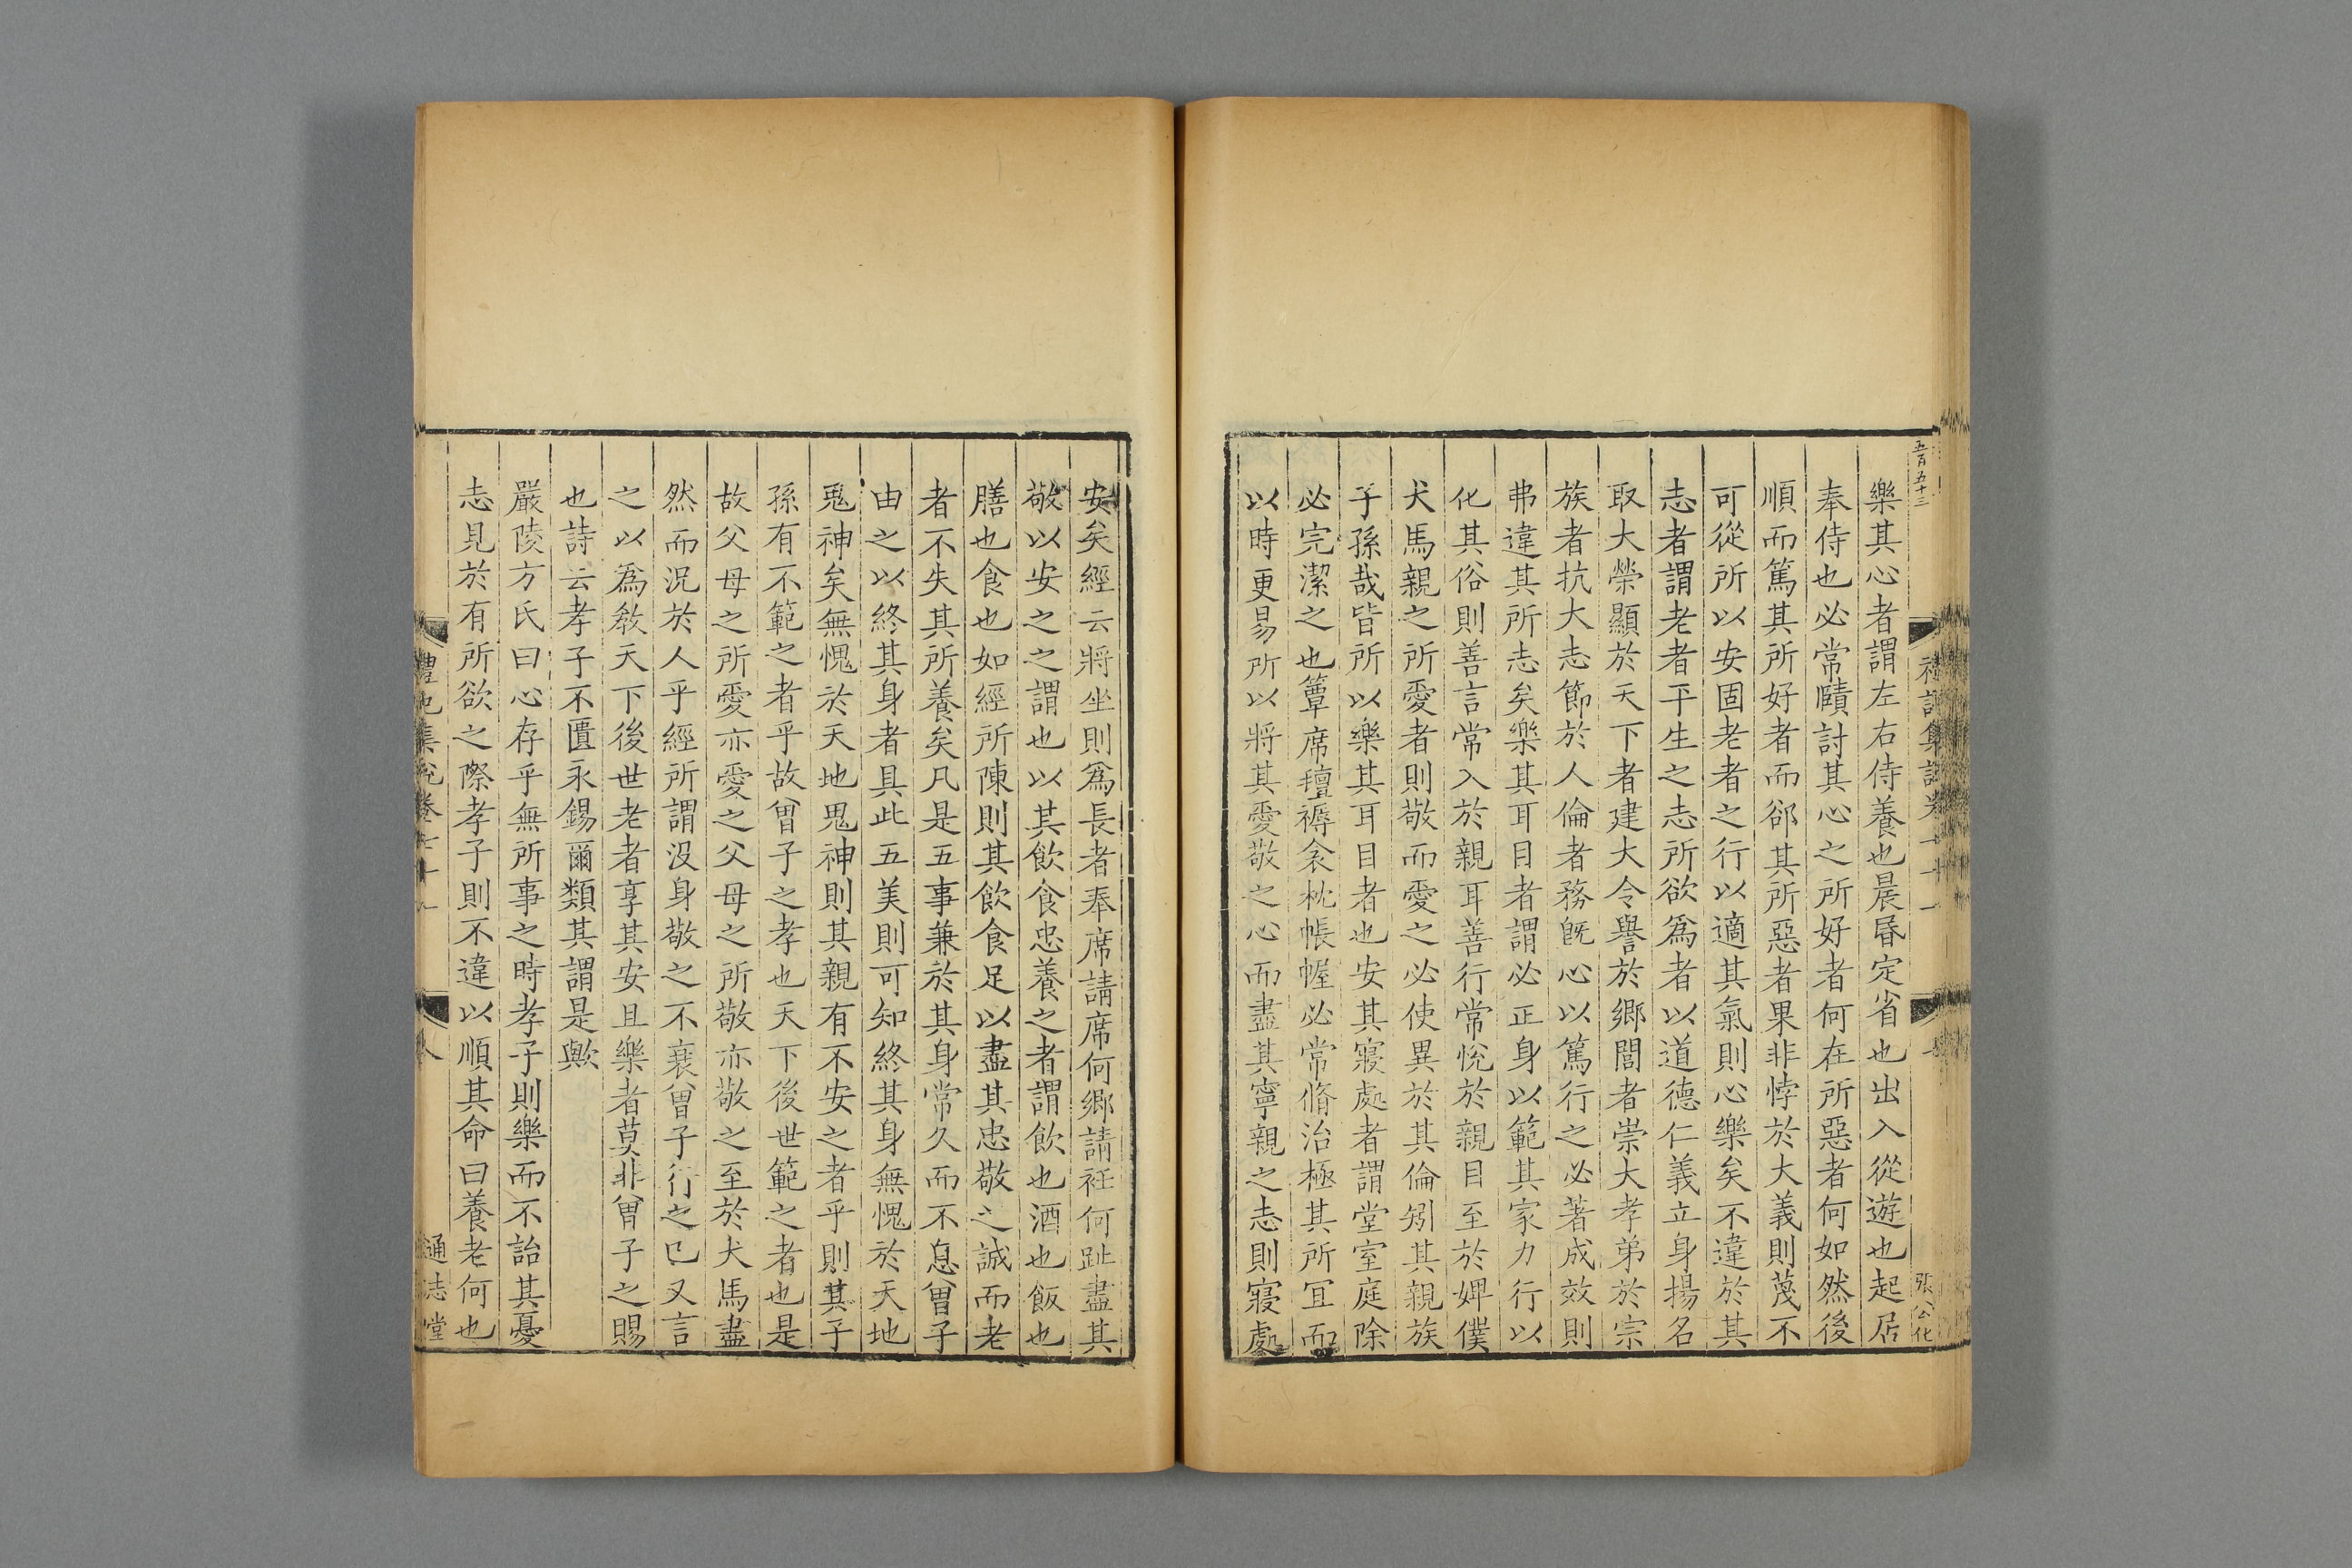 五百五十三
樂其心者謂左右侍養也晨昏定省也出入從遊也起居
奉侍也必常賾討其心之所好者何在所惡者何如然後
順而篤其所好者而郤其所惡者果非悖於大義則蔑不
可從所以安固老者之行以適其氣則心樂矣不違於其
志者謂老者平生之志所欲爲者以道德仁義立身揚名
取大榮顯於天下者建大令譽於鄉閭者崇大孝弟於宗
族者抗大志節於人倫者務旣心以篤行之必著成效則
弗違其所志矣樂其耳目者謂必正身以範其家力行以
化其俗則善言常入於親耳善行常悅於親目至於婢僕
犬馬親之所愛者則敬而愛之必使異於其倫矧其親族
子孫哉皆所以樂其耳目者也安其寢處者謂堂室庭除
必完潔之也簟席氊褥衾枕帳幄必常脩治極其所宜而
以時更易所以將其愛敬之心而盡其寧親之志則寢處
張公化
安矣經云將坐則爲長者奉席請席何鄉請衽何趾盡其
敬以安之之謂也以其飲食忠養之者謂飲也酒也飯也
膳也食也如經所陳則其飲食足以盡其忠敬之誠而老
者不失其所養矣凡是五事兼於其身常久而不息曾子
由之以終其身者具此五美則可知終其身無愧於天地
鬼神矣無愧於天地鬼神則其親有不安之者乎則其子
孫有不範之者乎故曾子之孝也天下後世範之者也是
故父母之所愛亦愛之父母之所敬亦敬之至於犬馬盡
然而況於人乎經所謂沒身敬之不衰曾子行之已又言
之以爲敎天下後世老者享其安且樂者莫非曾子之賜
也詩云孝子不匱永錫爾類其謂是歟
嚴陵方氏曰心存乎無所事之時孝子則樂而不詒其憂
志見於有所欲之際孝子則不違以順其命曰養老何也
禮記集說卷七十一
八
通志堂